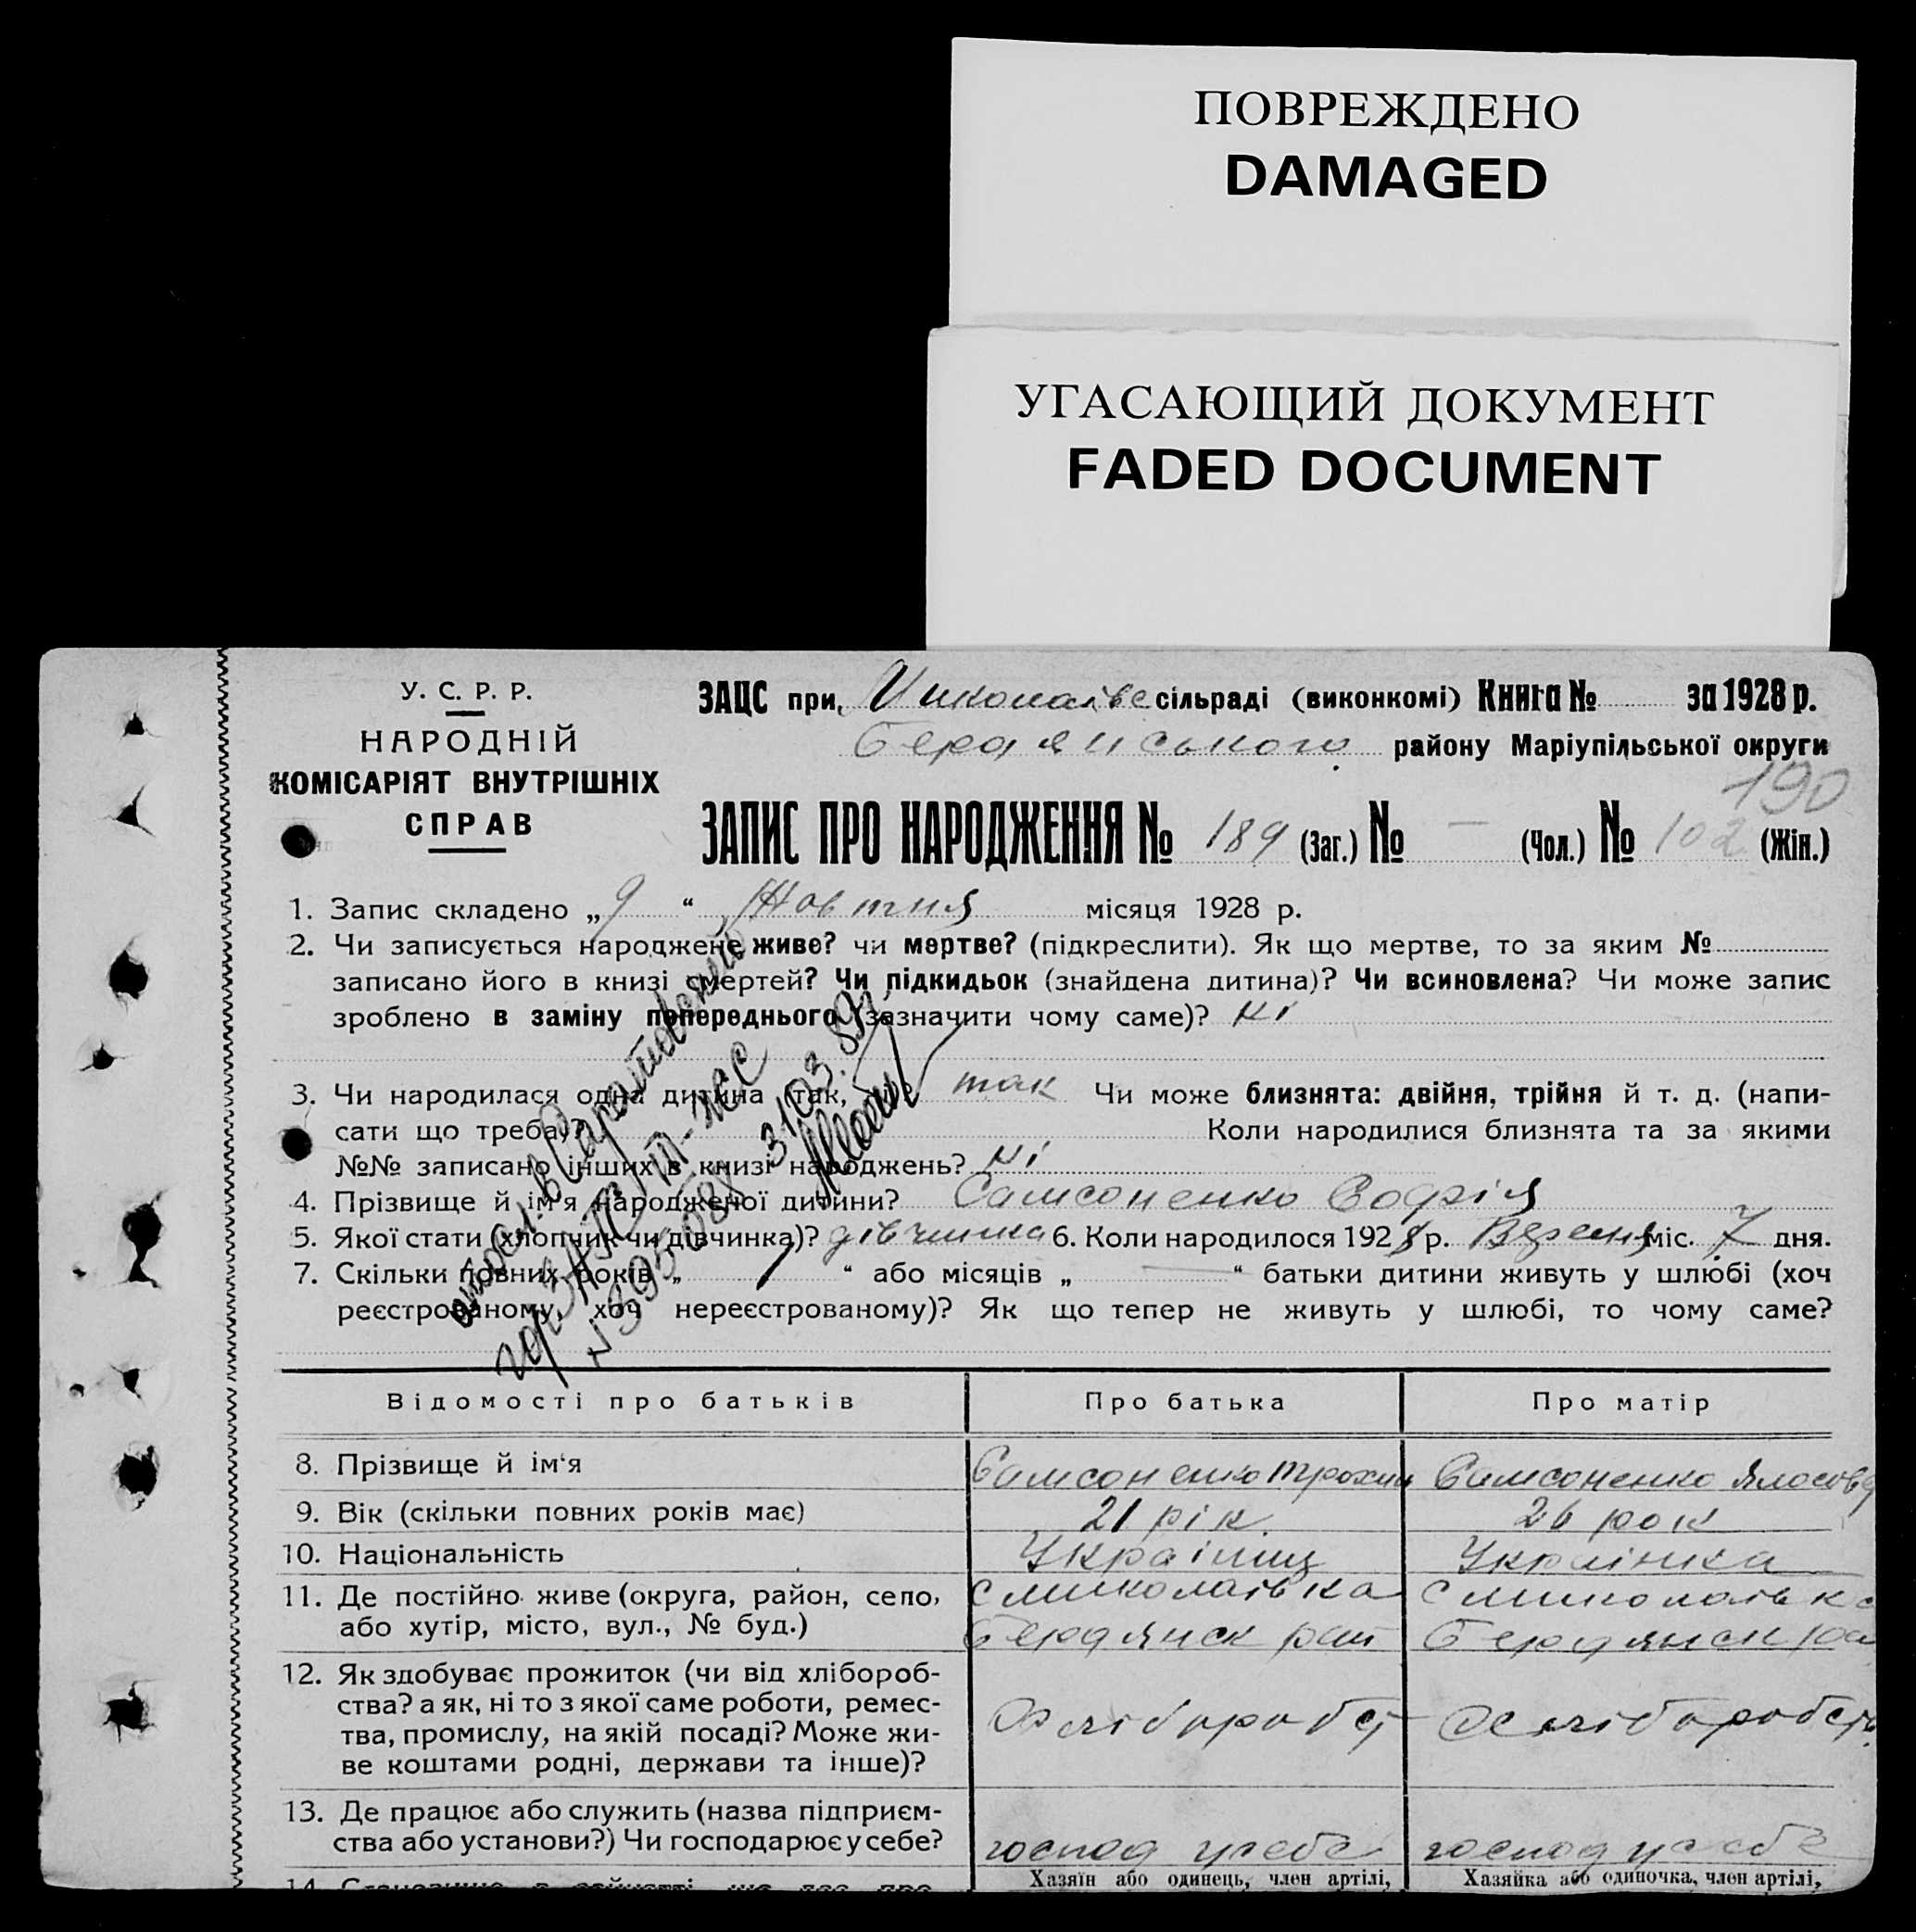 ПОВРЕЖДЕНО
DAMAGED
УГАСАЮЩИЙ ДОКУМЕНТ
FADED DOCUMENT
У. С. Р. Р.
НАРОДНІЙ
КОМІСАРІЯТ ВНУТРІШНІХ
СПРАВ
ЗАЦС при Миколаївс сільраді (виконкомі) Книга № за 1928 р.
Бердянського району Маріупільської округи
190
ЗАПИС ПРО НАРОДЖЕННЯ № 189 (Заг.) № — (Чол.) № 102 (Жін.)
1. Запис складено „ 9 “ Жовтня місяця 1928 р.
2. Чи записується народжене живе? чи мертве? (підкреслити). Як що мертве, то за яким №
записано його в книзі смертей? Чи підкидьок (знайдена дитина)? Чи всиновлена? Чи може запис
зроблено в заміну попереднього (зазначити чому саме)? ні
3. Чи народилася одна дитина (так, ні)? так Чи може близнята: двійня, трійня й т. д. (напи-
сати що треба)? Коли народилися близнята та за якими
№№ записано інших в книзі народжень? ні
4. Прізвище й ім'я народженої дитини? Самсоненко Софія
5. Якої стати (хлопчик чи дівчинка)? дівчинка 6. Коли народилося 1928 р. Вересня міс. 7 дня.
7. Скільки повних років „ 1 “ або місяців „ — “ батьки дитини живуть у шлюбі (хоч
реєстрованому, хоч нереєстрованому)? Як що тепер не живуть у шлюбі, то чому саме?
31.03.89г.
Відомості про батьків Про батька Про матір
8. Прізвище й ім'я Самсоненко Трохим Самсоненко
9. Вік (скільки повних років має) 21 рік. 26 рок
10. Національність Українц Українка
11. Де постійно живе (округа, район, село, с Миколаївка с Миколаївка
або хутір, місто, вул., № буд.) Бердянск рай Бердянск ра
12. Як здобуває прожиток (чи від хлібороб-
ства? а як, ні то з якої саме роботи, ремес-
тва, промислу, на якій посаді? Може жи- Хліборобст Хліборобств
ве коштами родні, держави та інше)?
13. Де працює або служить (назва підприєм-
ства або установи?) Чи господарює у себе? господ у себе господ у себе
Хазяїн або одинець, член артілі, Хазяйка або одиночка, член артілі,